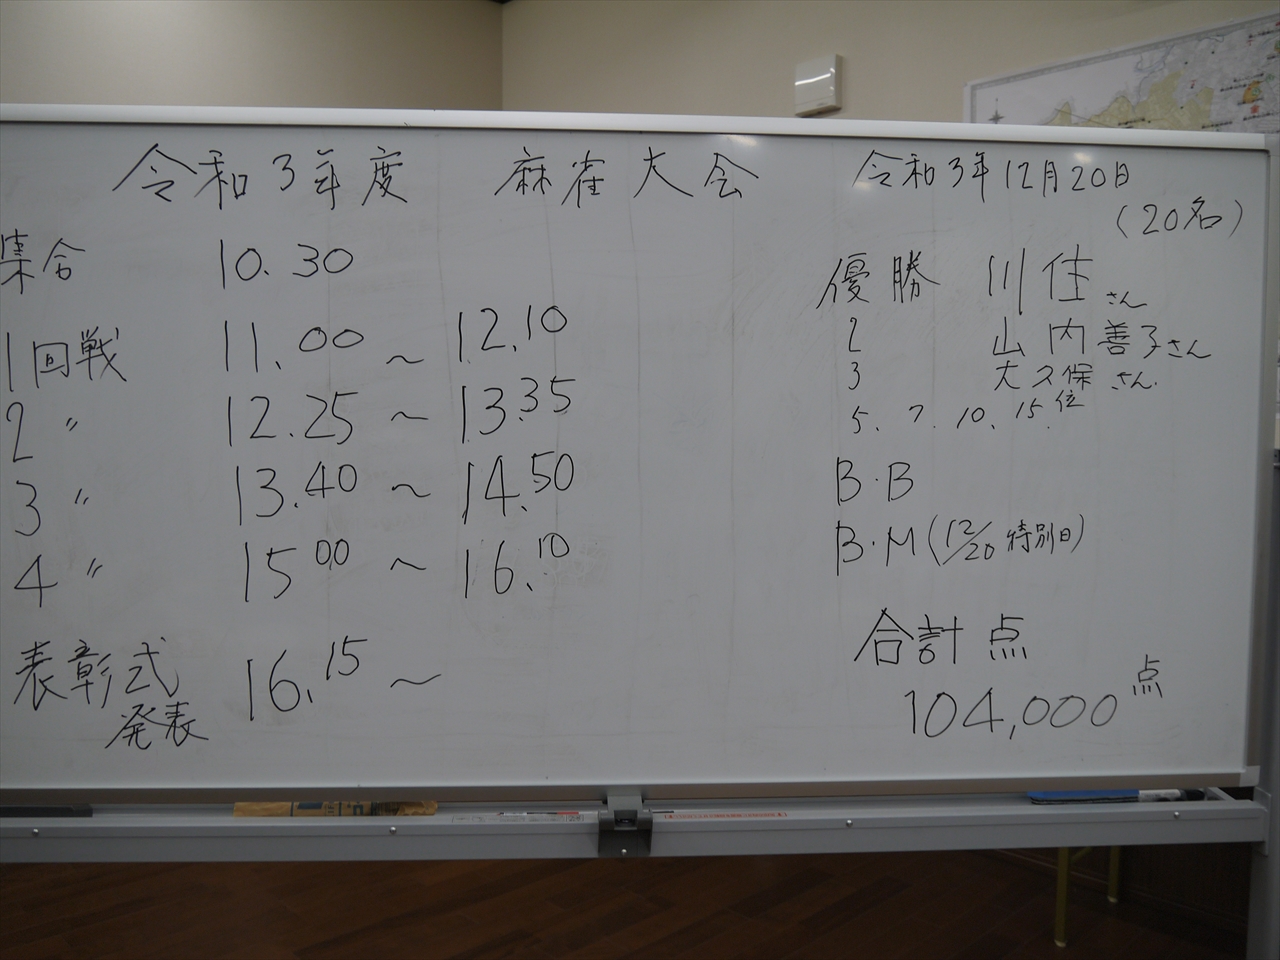 令和3年度 麻雀大会
集合 10.30
1回戦 11.00 ~ 12.10
2 〃 12.25 ~ 13.35
3 〃 13.40 ~ 14.50
4 〃 15.00 ~ 16.10
表彰式 16.15 ~
発表
令和3年12月20日
(20名)
優勝 川住さん
2 山内善子さん
3 大久保さん.
5. 7. 10. 15.位
B.B
B.M(12/20 特別日)
合計点
104,000点